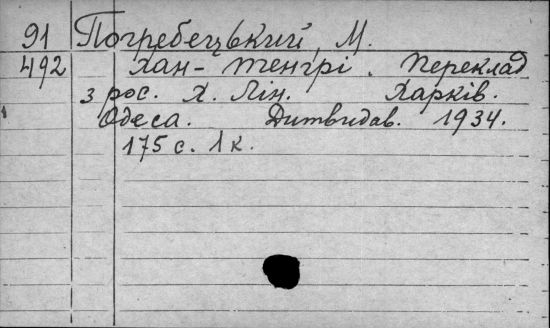 91 Погребецький, М.
492 Хан-Тенгрі. Переклад
з рос. Х. Лін. Харків.
Одеса. Дитвидав. 1934.
175 с. 1 к.